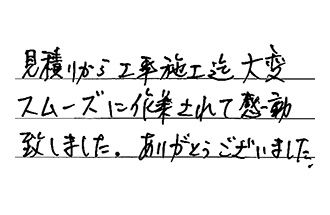 見積りから工事施工迄大変
スムーズに作業されて感動
致しました。ありがとうございました。